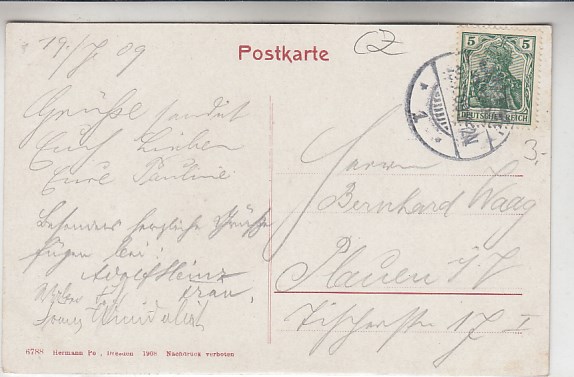 19./I. 09
Postkarte
5 5
DEUTSCHES REICH
3.-
Grüße sendet
Euch Lieben
Eure Pauline
Besonders herzliche Grüße
fügen bei:
Adolf Heinz
Frau,
Herrn
Bernhard Waag
Plauen i. V.
Tischerstr. 17 I
6788 Hermann Po , Dresden 1908 Nachdruck verboten